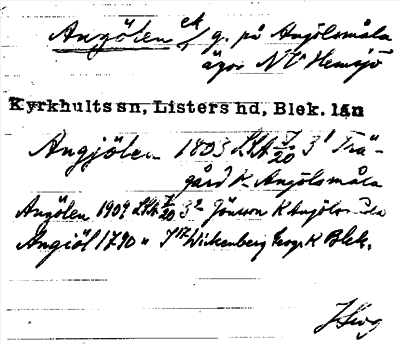 Angölen ek g. på Angölsmåla
ägor NV Hemsjö
Kyrkhults sn, Listers hd, Blek. län
Angjölen 1803 LSA 7/20 3¹ Trä-
gård K Angölsmåla
Angölen 1909 LSA 7/20 3² Jönsson K Angölsmåla
Angiöl 1790 Wickenberg Geogr. K Blek.